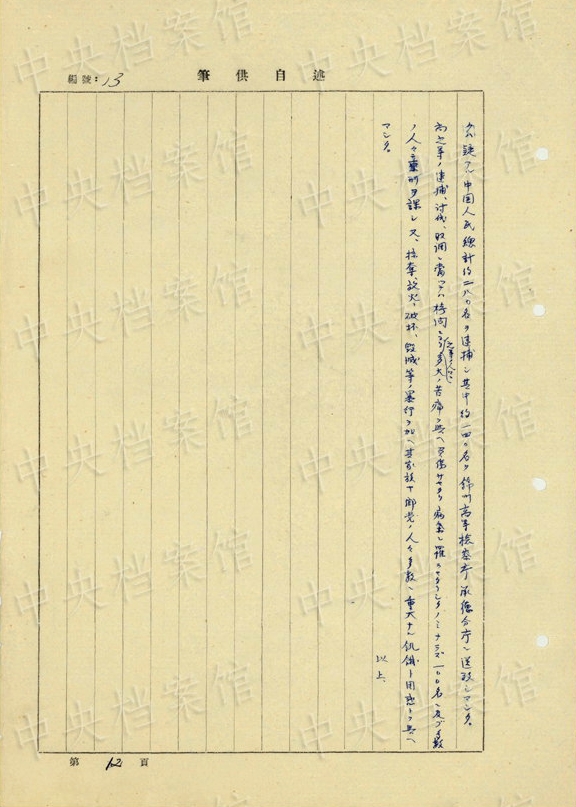 述自供筆
編號:13
タル疑アル中国人民總計約二八〇名ヲ逮捕シ其中約一四〇名ヲ錦州高等檢察庁承德分庁ニ送致シマシタ。
尚之等ノ逮捕、討伐、取調ニ當ツテハ拷問ニヨリ之等ノ人々ニ多大ノ苦痛ヲ與ヘ 病気ニ罹 ノミナラズ 一〇〇名ニ及ブ多数
ノ人々ニ重刑ヲ課シ又、掠奪、放火、破坏、毀滅等ノ暴行ヲ加ヘ其家族ヤ郷党ノ人々多数ニ重大ナル飢餓ト困惑トヲ與ヘ
マシタ。
以上
第 12 頁
中央档案馆